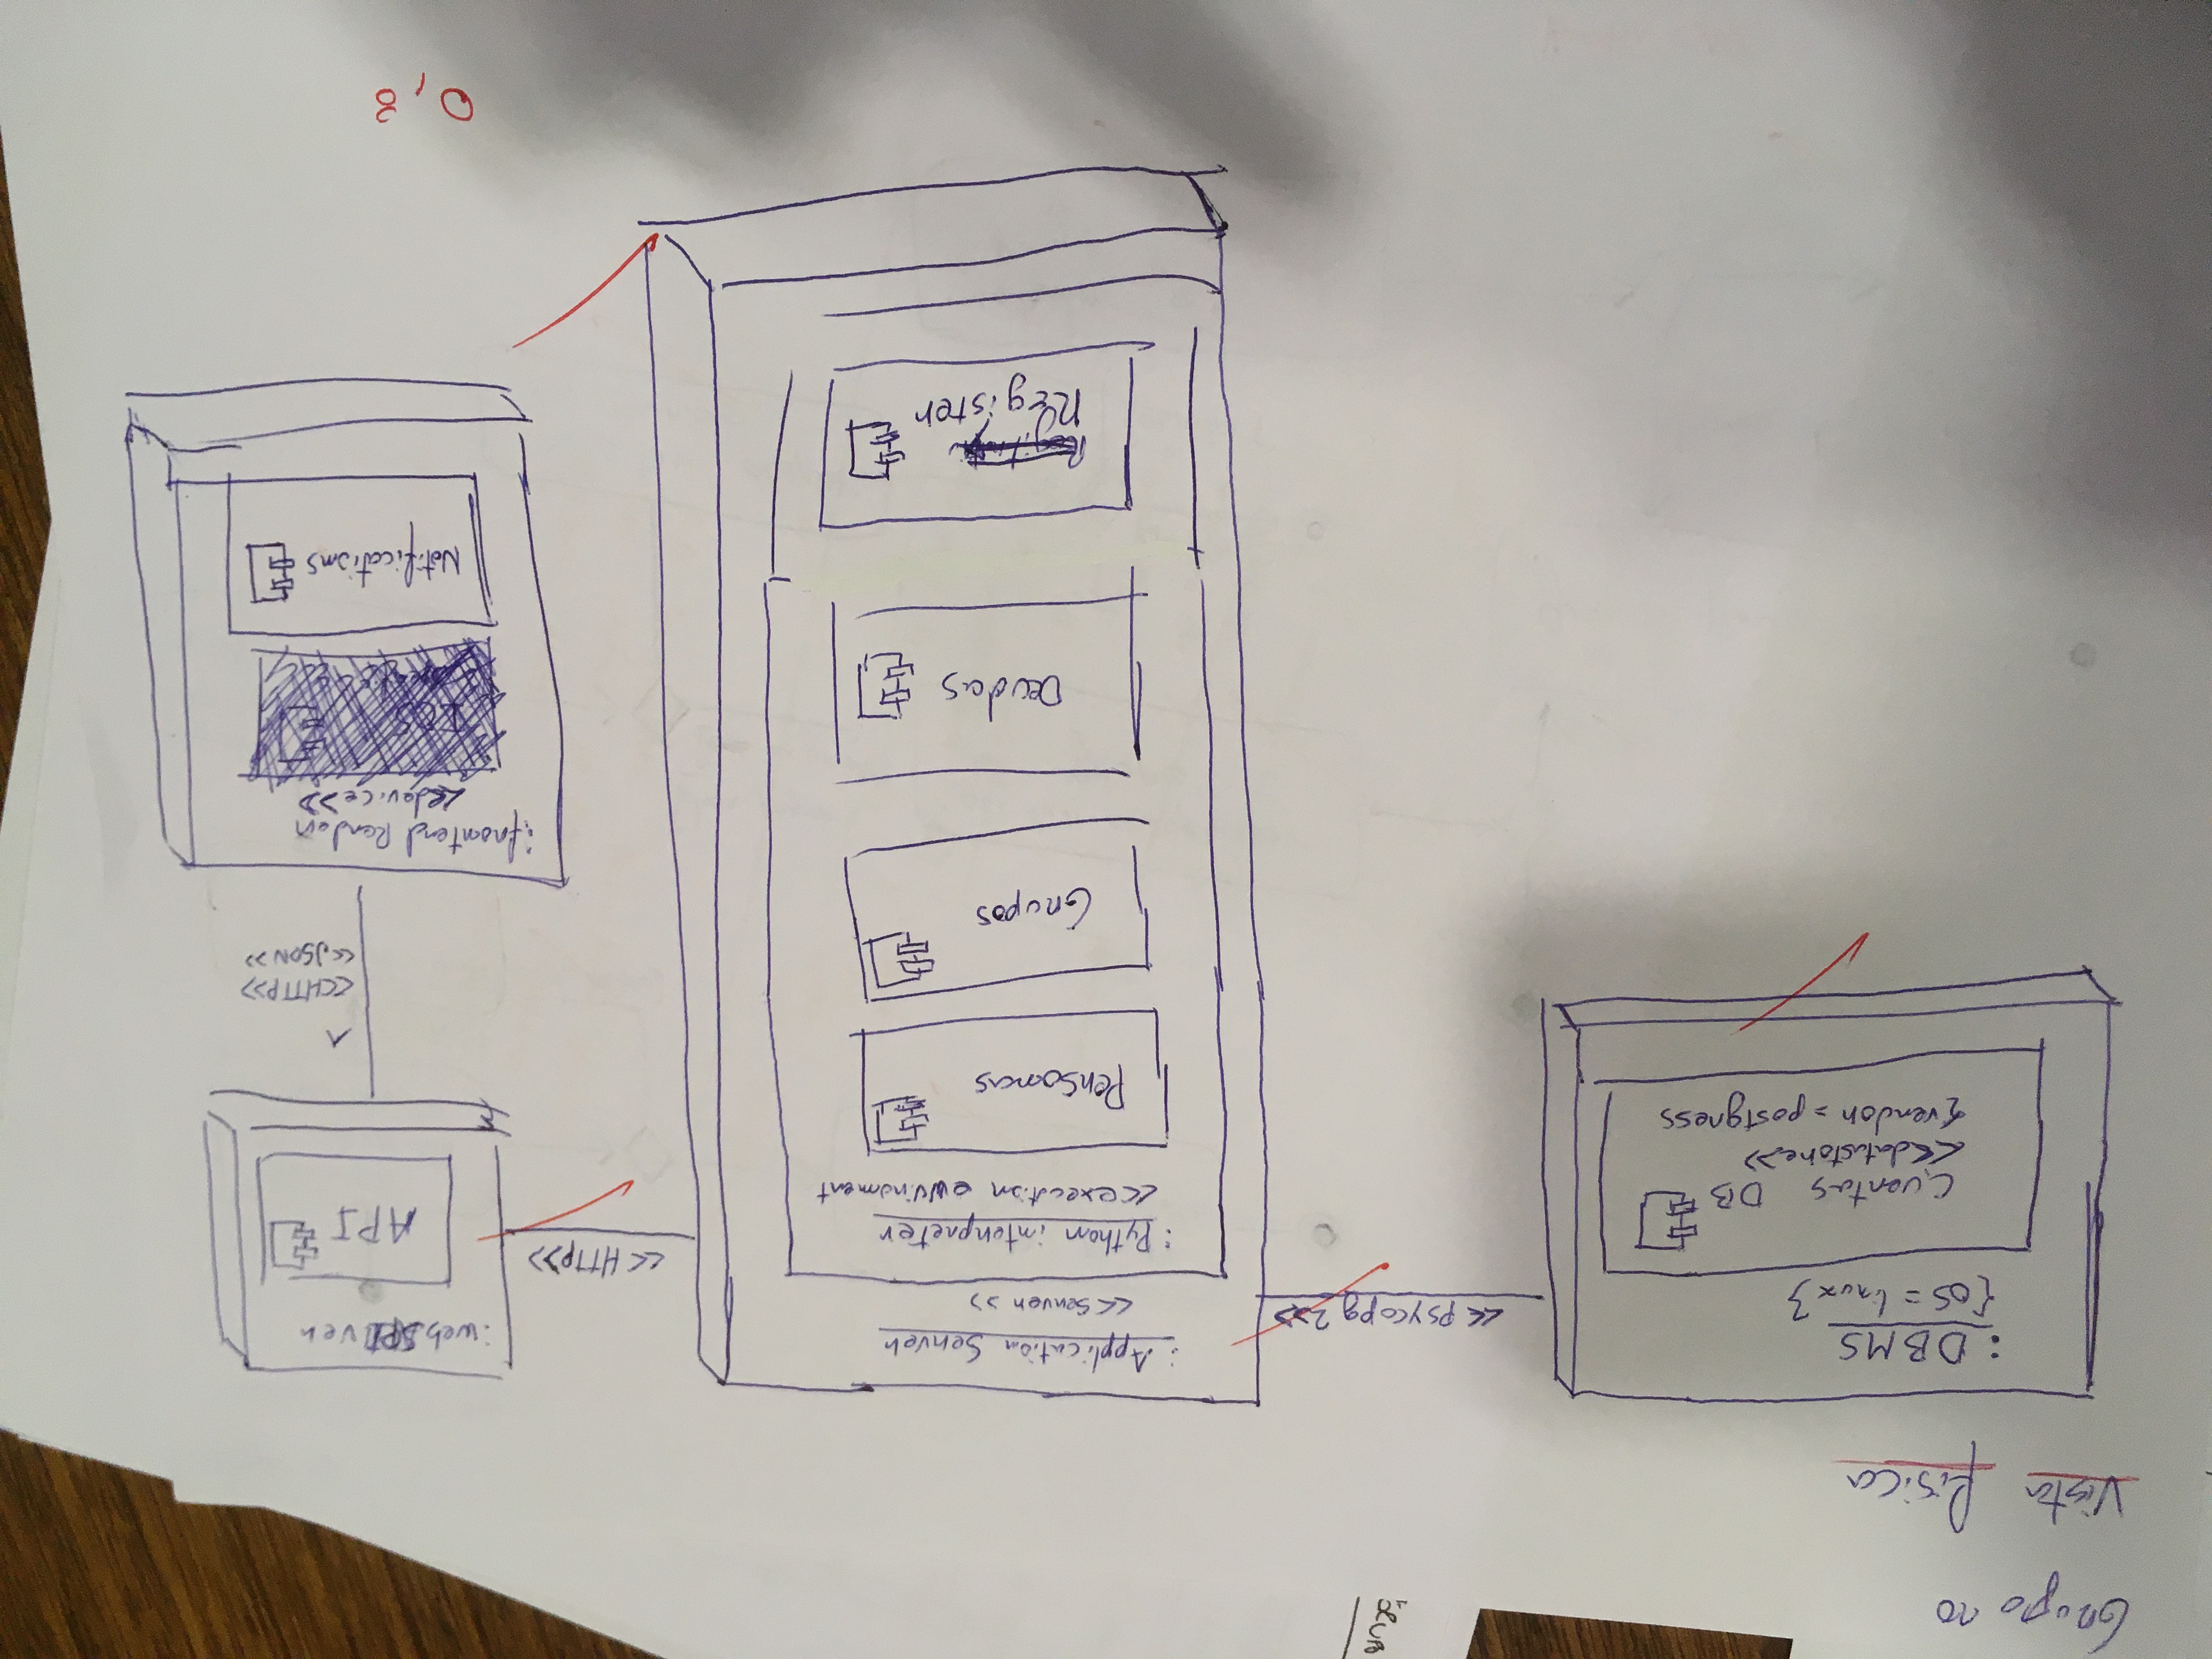 Grupo 10
Vista física
:DBMS
{OS = linux}
Cuentas DB
<<datastore>>
{vendor = postgress
<<Psycopg2>>
:Application Server
<<server>>
:Python interpreter
<<execution envirnoment
Personas
Grupos
Deudas
Register
<<HTTP>>
:web
API
^
<<HTTP>>
<<JSON>>
<<device>>
Notifications
0,8